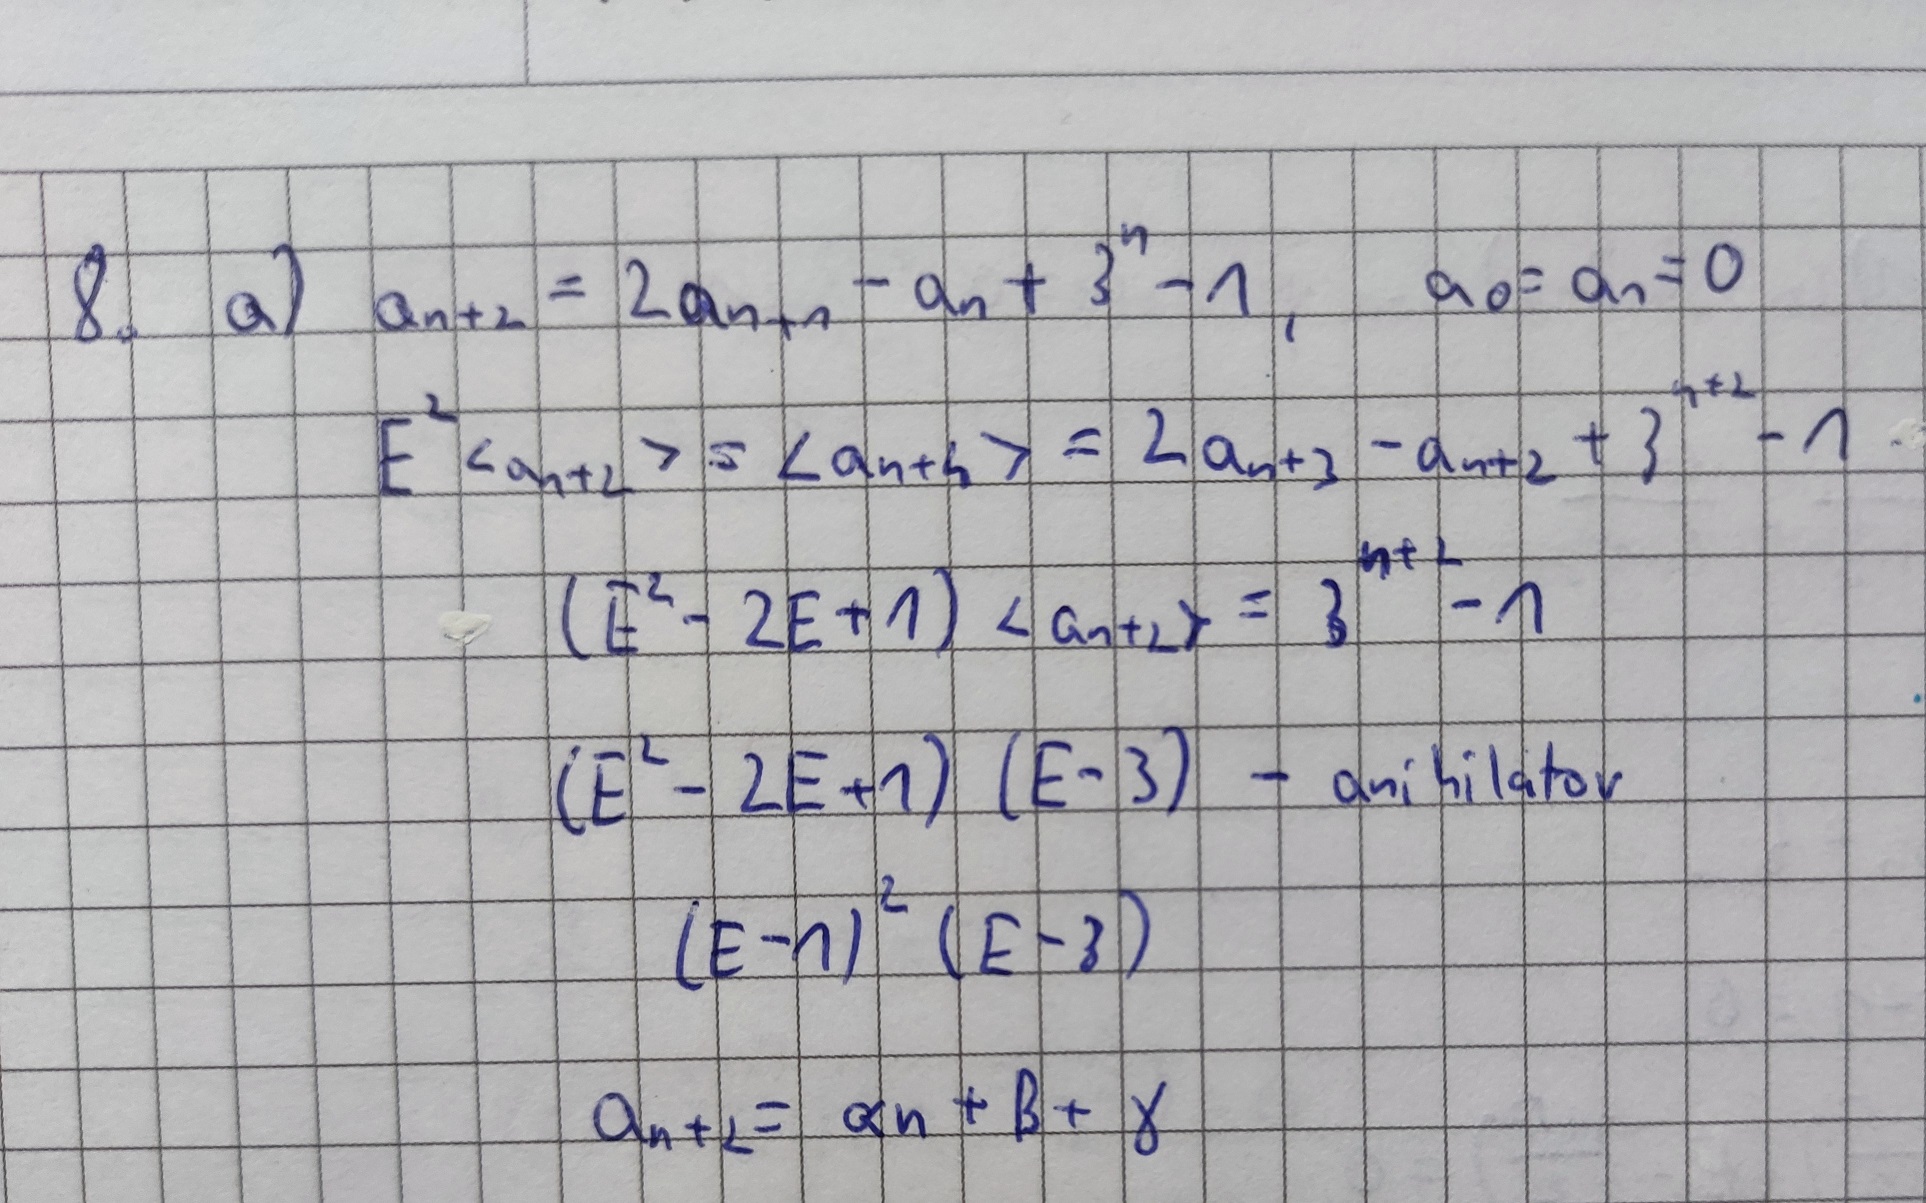 8. a) aₙ₊₂ = 2aₙ₊₁ - aₙ + 3ⁿ - 1, a₀ = a₁ = 0
E² <aₙ₊₂> = <aₙ₊₄> = 2aₙ₊₃ - aₙ₊₂ + 3ⁿ⁺² - 1
(E² - 2E + 1) <aₙ₊₂> = 3ⁿ⁺² - 1
(E² - 2E + 1) (E - 3) - anihilator
(E - 1)² (E - 3)
aₙ₊₂ = αn + β + γ